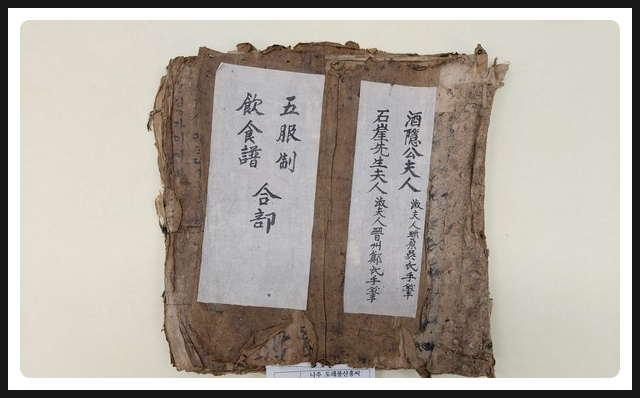 酒隱公夫人 淑夫人 吳氏手筆
石崖先生夫人 淑夫人晉州鄭氏手筆
五服制
飮食譜
合部
나주 도래풍산홍씨